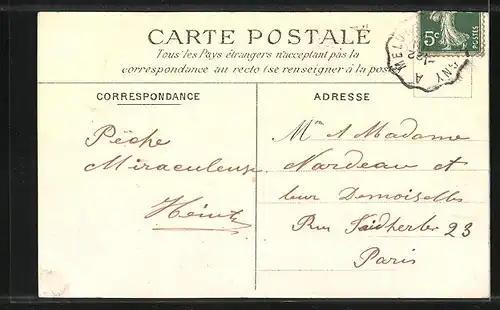 CARTE POSTALE
5c
POSTES
Tous les Pays étrangers n'acceptent pas la
correspondance au recto (se renseigner à la poste
CORRESPONDANCE
ADRESSE
Pêche
Miraculeuse
Mme A Madame
Nardeau et
leur Demoiselles
Rue Faidherbe 23
Paris